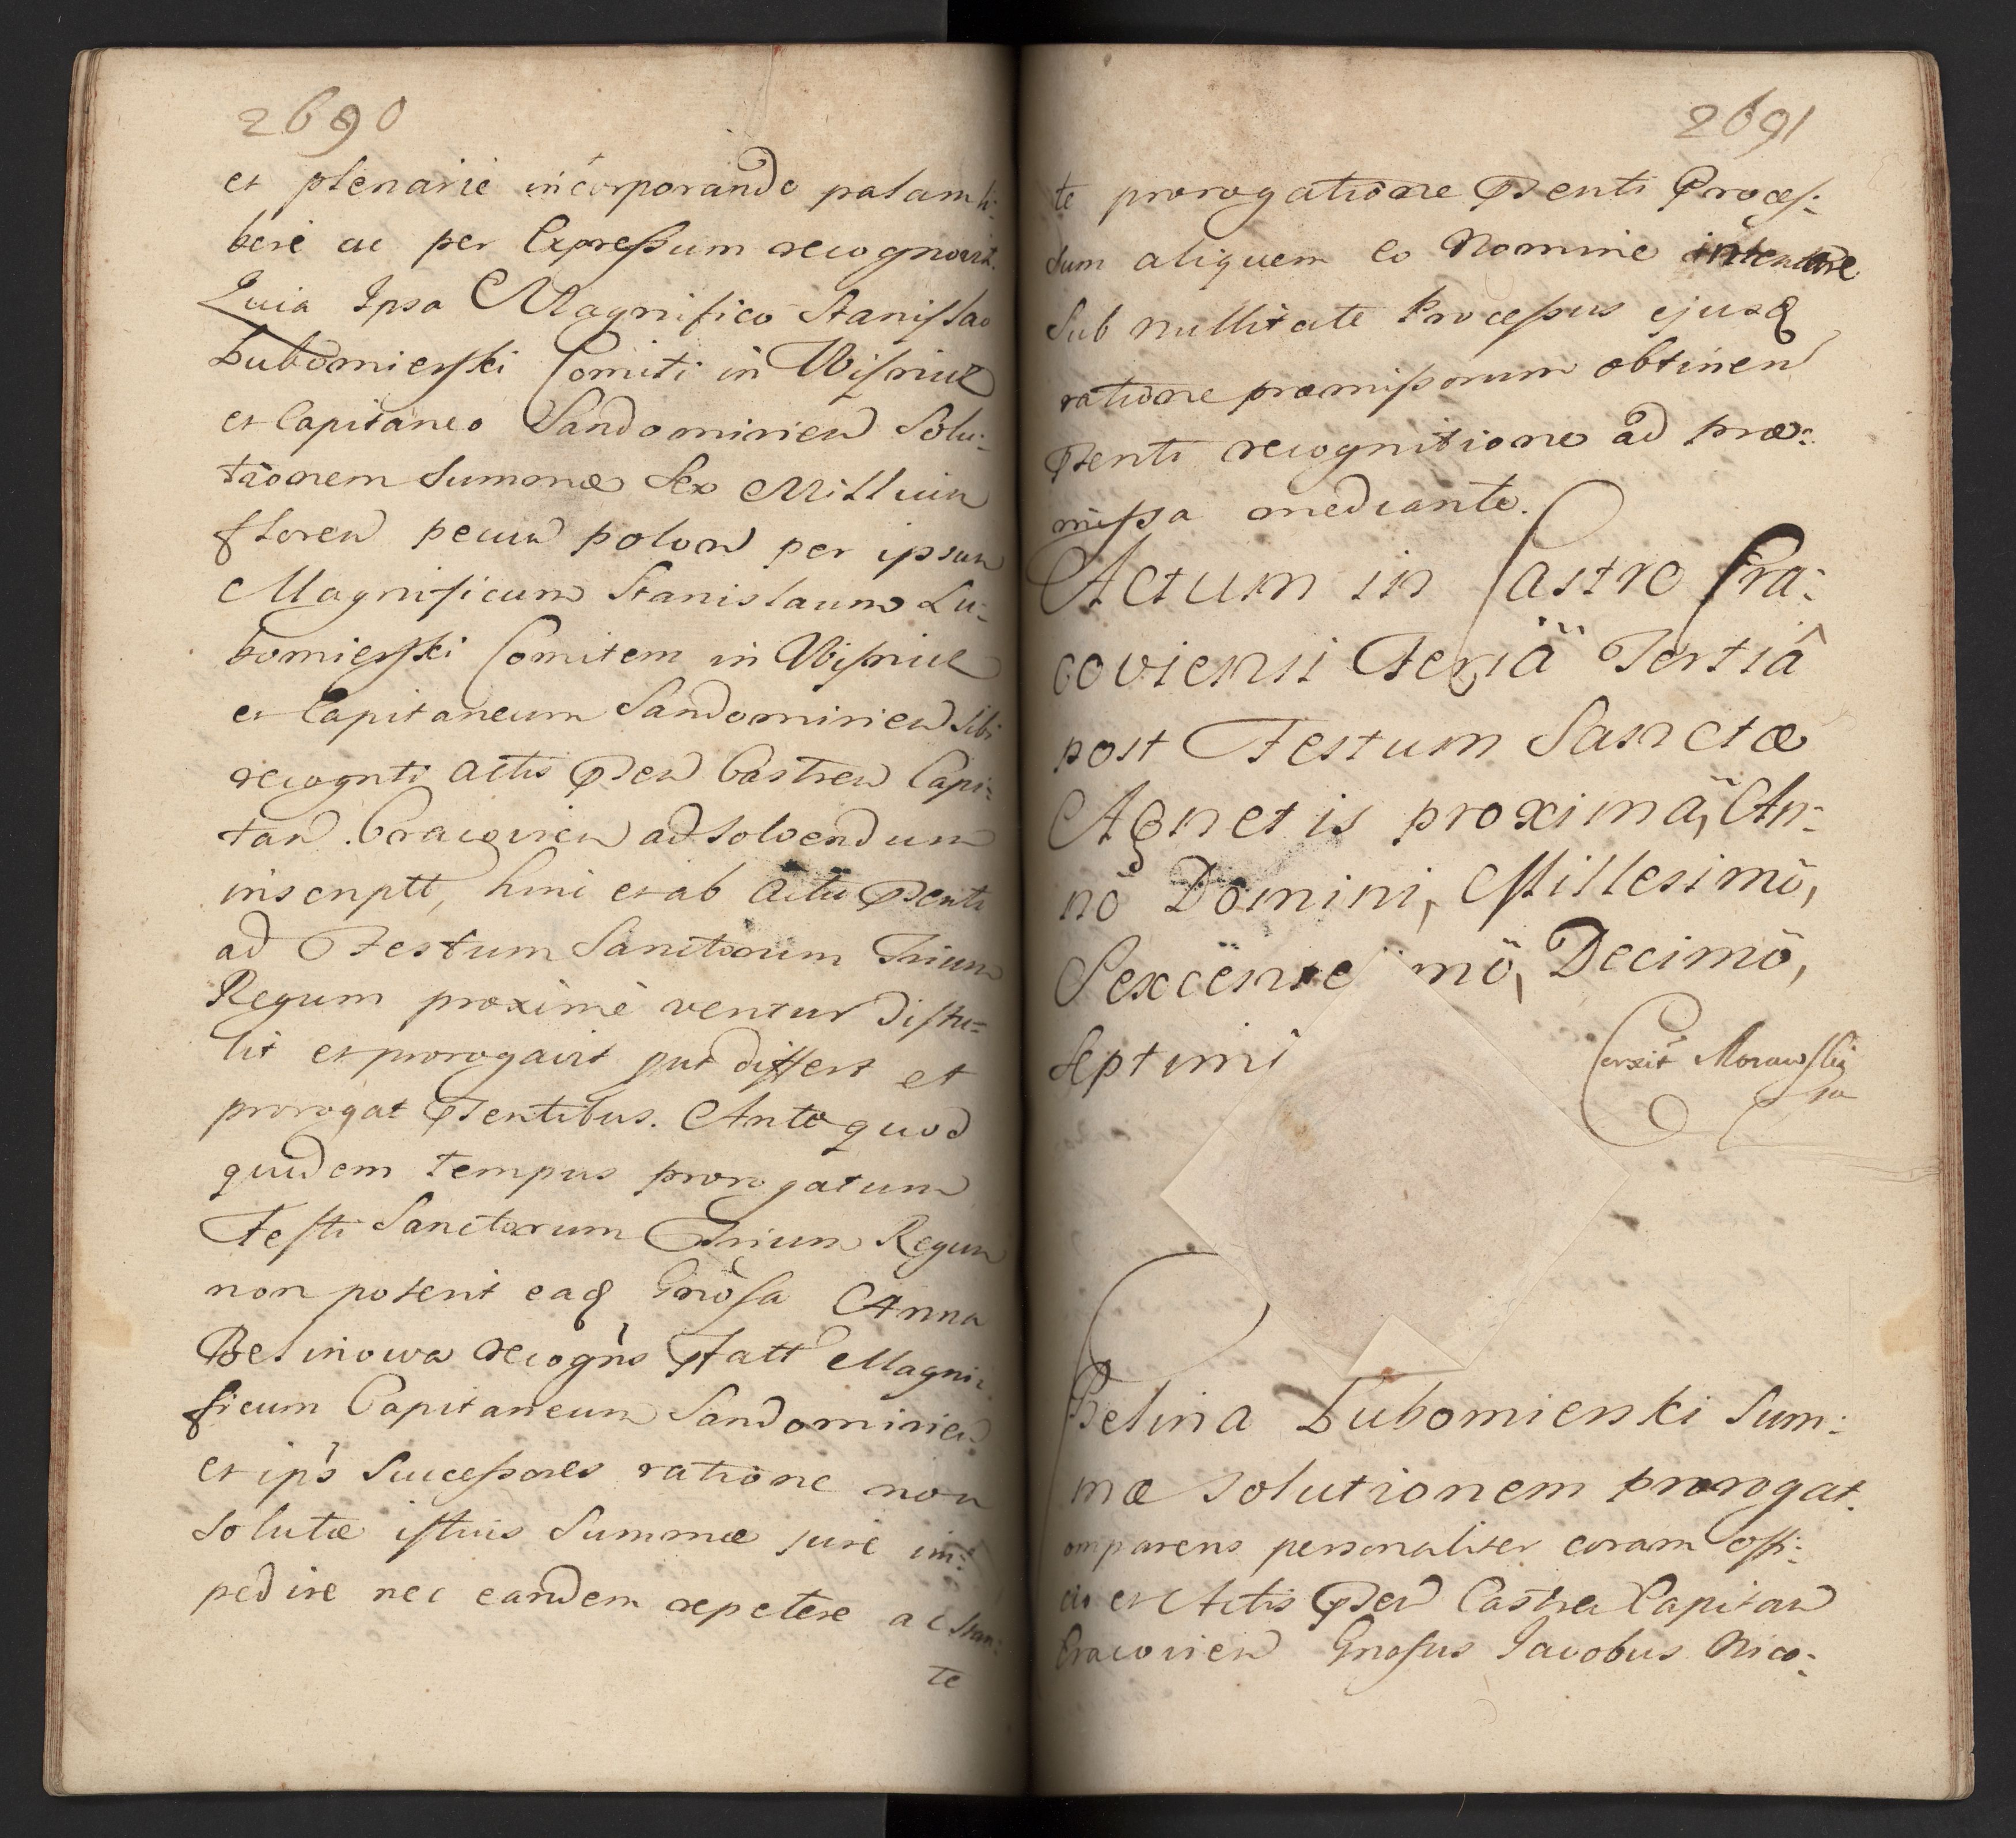 2690
et plenarie incorporando palam li:
bere ac per Expressum recognovit.
Quia Ipsa Magnifico Stanislao
Lubomierski Comiti in Wisnicz
et Capitaneo Sandomirien Solu:
tionem Summæ Sex Millium
floren pecun polon per ipsum
Magnificum Stanislaum Lu:
bomierski Comitem in Wisnicz
et Capitaneum Sandomirien sibi
recognti Actis Psen Castren Capi:
tan Cracovien ad solvendum
inscriptt, hinc et ab Actu Psenti
ad Festum Sanctorum Trium
Regum proximè ventur distu=
lit et prorogavit put differt et
prorogat Psentibus. Ante quod
quidem tempus prorogatum
Festi Sanctorum Trium Regum
non poterit eadq Gnosa Anna
Belinowa recogns Pfatt Magni:
ficum Capitaneum Sandomirien
et ips Successores ratione non
solutæ istius Summæ jure im:
pedire nec eandem repetere ac stan:
te
2691
te prorogatione Psenti Proces:
sum aliquem eo Nomine intentare
Sub nullitate Processus ejusd
ratione præmissorum obtinen
Psenti recognitione ad præ:
missa mediante.
Actum in Castro Cra:
coviensi Feriä Tertiâ
post Festum Sanctæ
Agnetis proximä, An:
nö Domini, Millesimö,
Sexcente mö, Decimö,
Septimi
Corxit Morawski
Belina Lubomierski Sum:
mæ solutionem prorogat.
omparens personaliter coram Offi:
cio et Actis Psen Castren Capitan
Cracovien Gnosus Jacobus Nico: